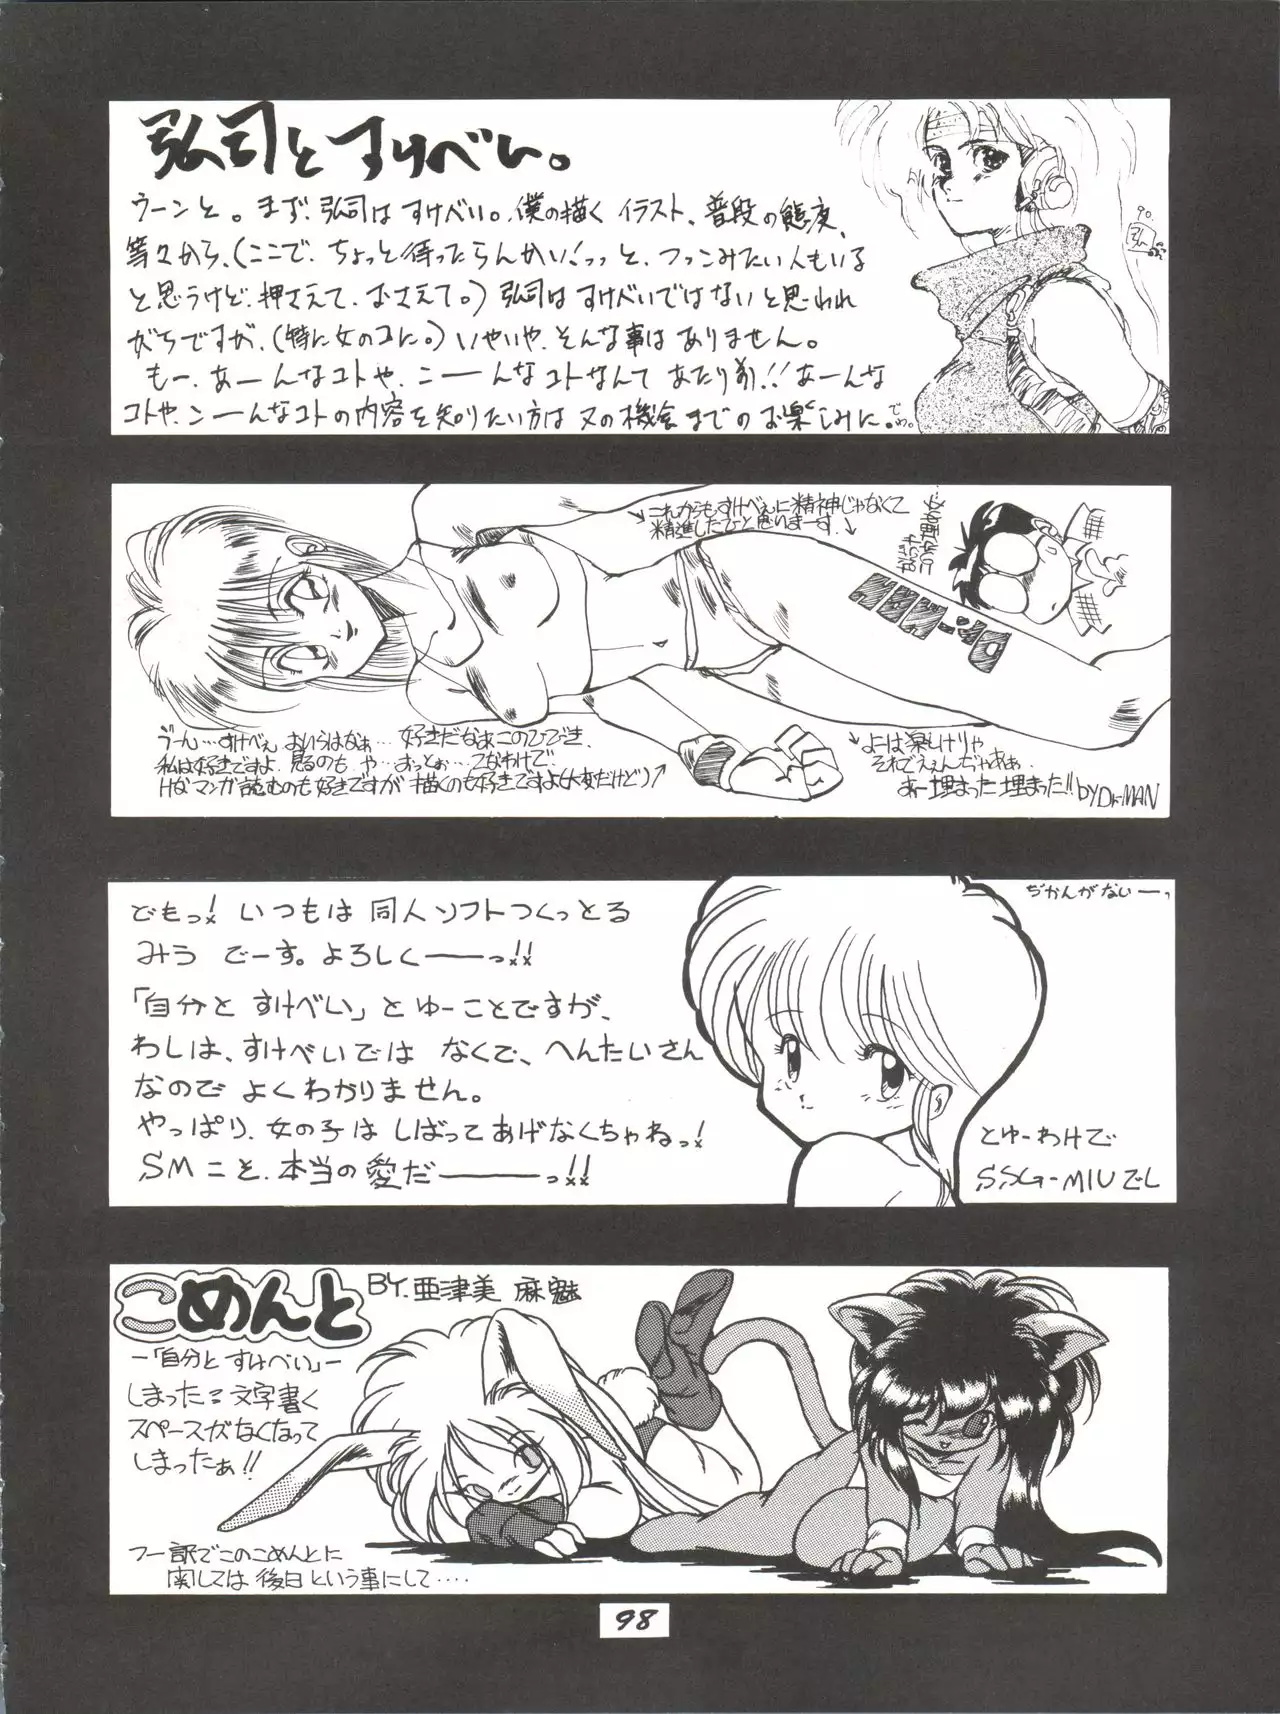 弘司とすけべい。
ウーンと。まず、弘司はすけべい。僕の描くイラスト、普段の態度、
等々から、(ここで、ちょっと待ったらんかい!っっと、つっこみたい人もいる
と思うけど、押さえて、おさえて。)弘司はすけべいではないと思われ
がちですが、(特に女のコに。)いやいや、そんな事はありません。
もー、あーんなコトや、こーーんなコトなんてあたり前!!あーんな
コトや、こーーんなコトの内容を知りたい方は又の機会までのお楽しみに。では。
90.
弘
これからもすけべぇに精神じゃなくて
精進したひと思いまーす。
うーん…すけべぇ おいらはなぁ… 好きだなぁこのひびき、
私は好きですよ、見るのも や…おっとぉ…てなわけで
けなマンガ読むのも好きですが 描くのも好きですよ
よーは楽しけりゃ
それでええんぢゃあぁ…
あー埋まった埋まった!! by Dr.MAN
どもっ! いつもは 同人ソフトつくっとる
みう でーす。よろしくーーっ!!
「自分と すけべい」と ゆーことですが、
わしは、すけべいでは なくで、へんたいさん
なので よくわかりません。
やっぱり、女の子は しばってあげなくちゃねっ!
SMこそ、本当の愛だーーーっ!!
ぢかんがないーっ
とゆーわけで
S,SG-MIUでし
こめんと BY. 亜津美 麻魅
ー「自分と すけべい」ー
しまった 文字書く
スペースがなくなって
しまったぁ!!
フー訳でこのこめんとに
関しては 後日 という事にして‥‥
98